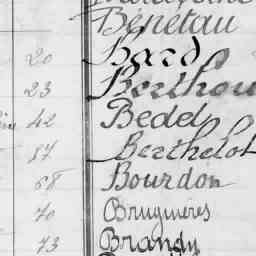 Bénétau
20 Bard
23 Berthou
42 Bedel
57 Berthelot
68 Bourdon
70 Bruguières
73 Brandy